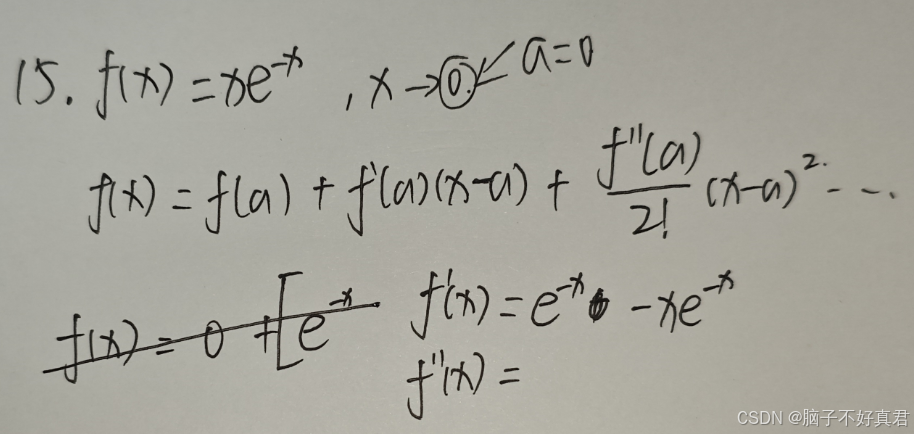 15. f(x) = xe^{-x} , x → 0. a=0
f(x) = f(a) + f'(a)(x-a) + \frac{f''(a)}{2!} (x-a)^2 ...
f(x) = 0 + [e^{-x}
f'(x) = e^{-x} - xe^{-x}
f''(x) =
CSDN @脑子不好真君